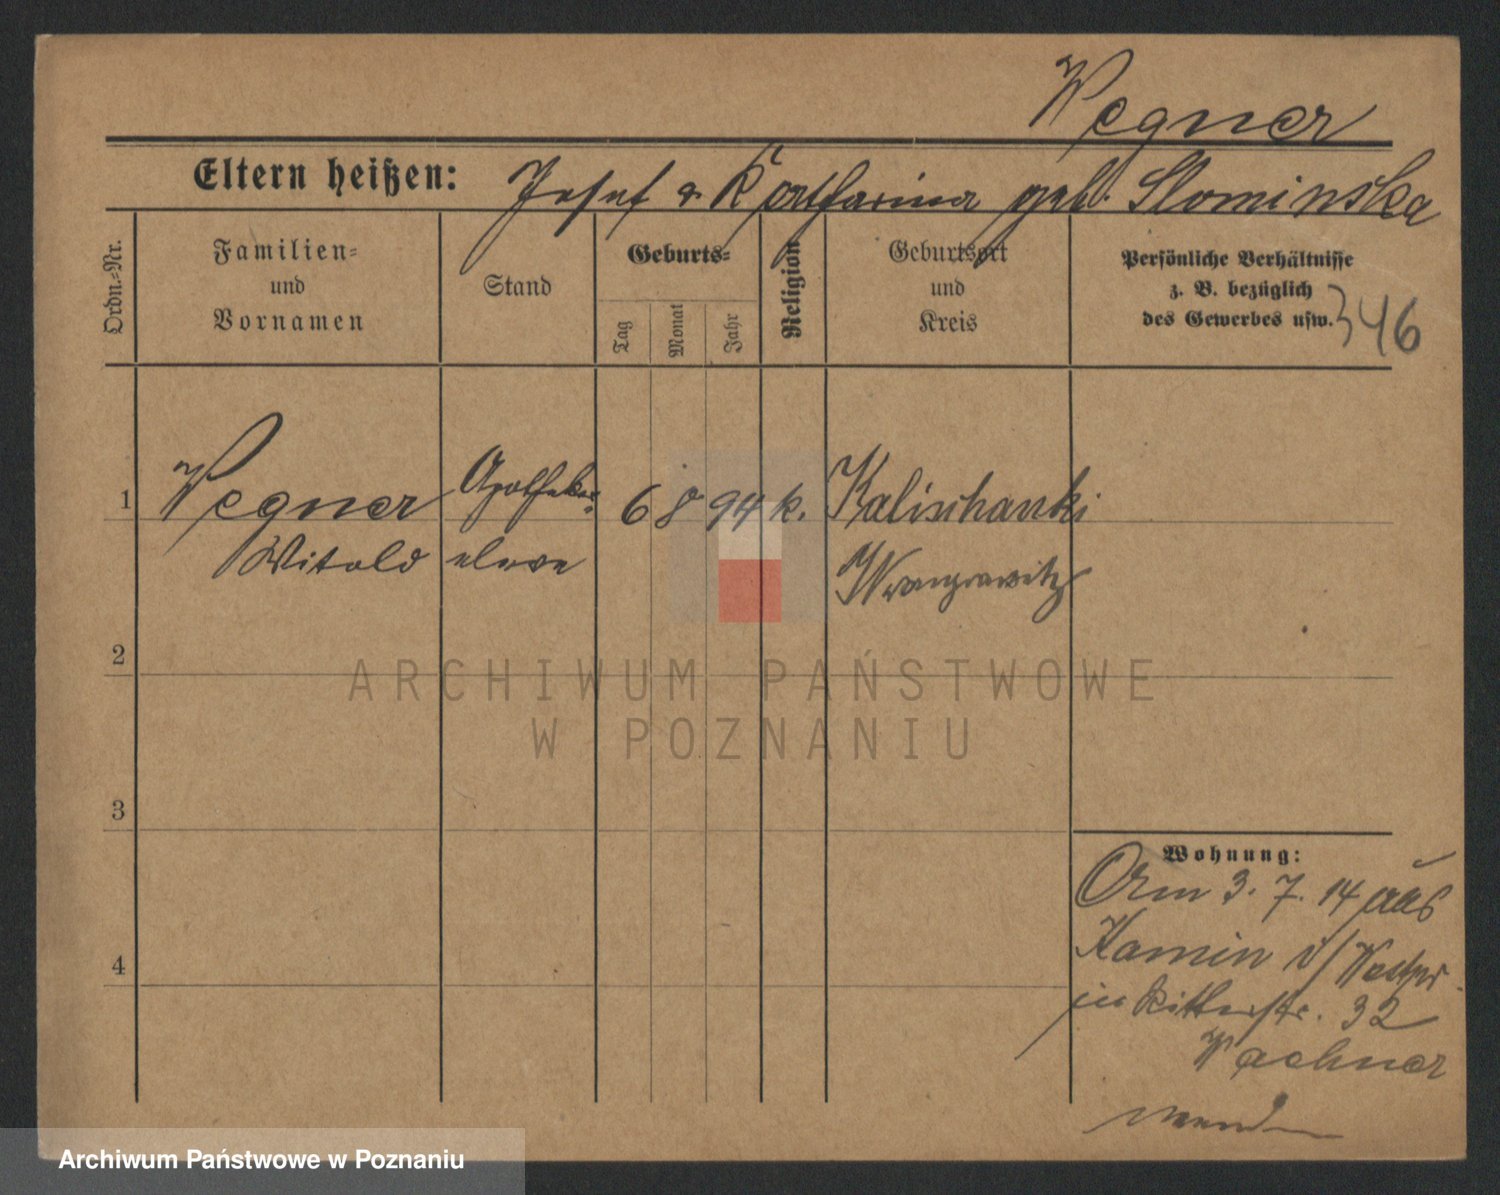 Wegner
Eltern heißen: Josef & Katharina geb. Slominska
Ordn.-Nr.
Familien-
und
Vornamen
Stand
Geburts-
Tag
Monat
Jahr
Religion
Geburtsort
und
Kreis
Persönliche Verhältnisse
z. B. bezüglich
des Gewerbes usw.
346
1 Wegner Apotheker- 6 8 94 k. Kalischanki
Witold eleve Wongrowitz
2
ARCHIWUM PAŃSTWOWE
W POZNANIU
3
Wohnung:
3. 7. 14 aus
Kamin i/Westpr.
in Ritterstr. 32
4
Archiwum Państwowe w Poznaniu